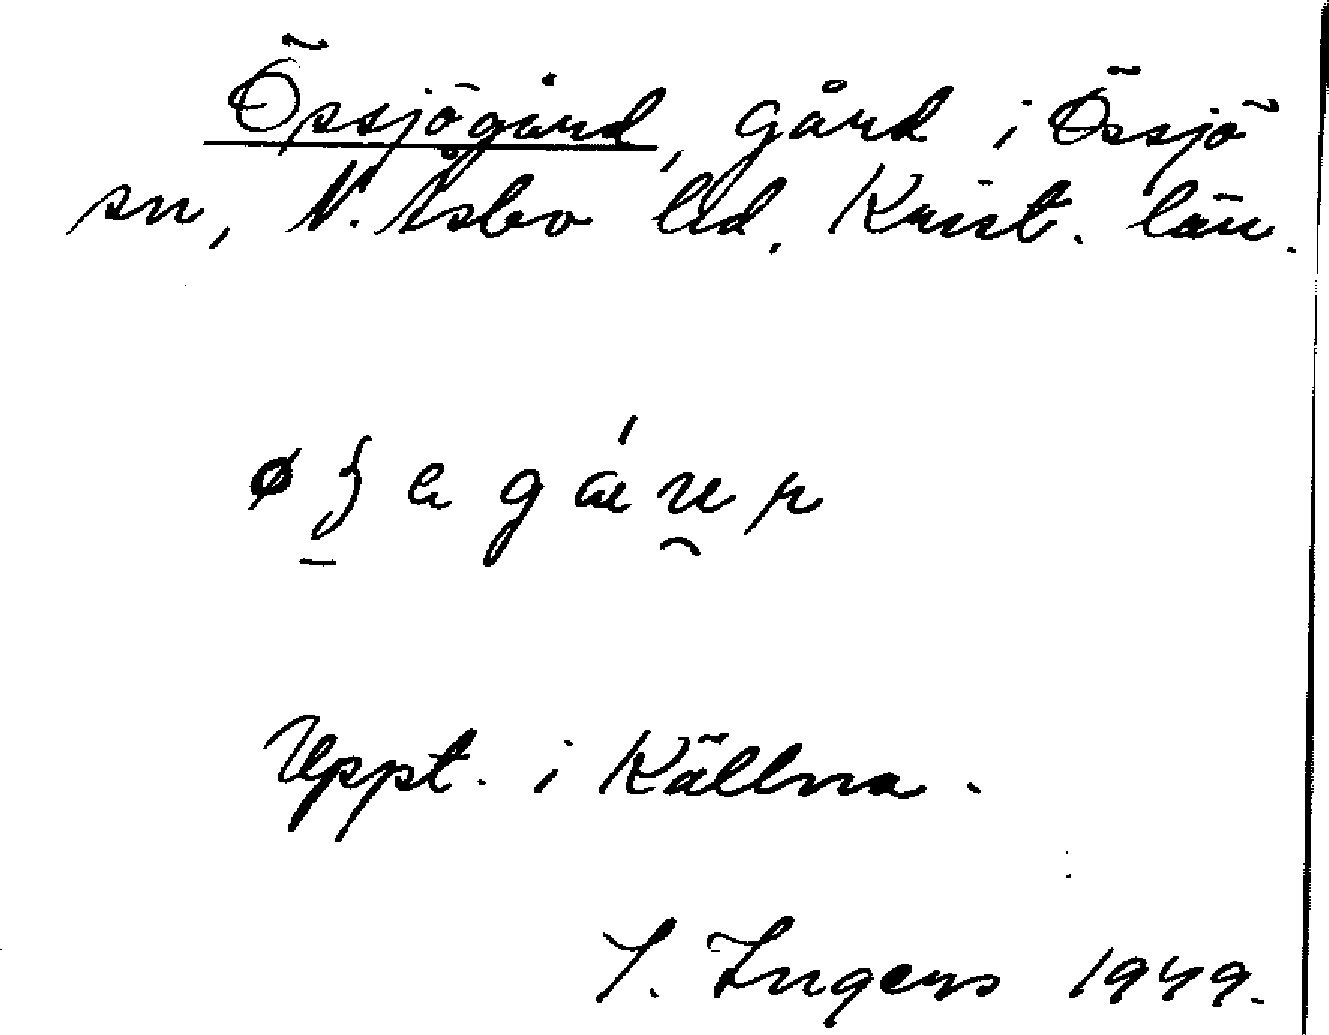 Össjögård, gård i Össjö
sn, N. Åsbo hd, Krist. län.
Uppt. i Källna.
I. Ingers 1949.